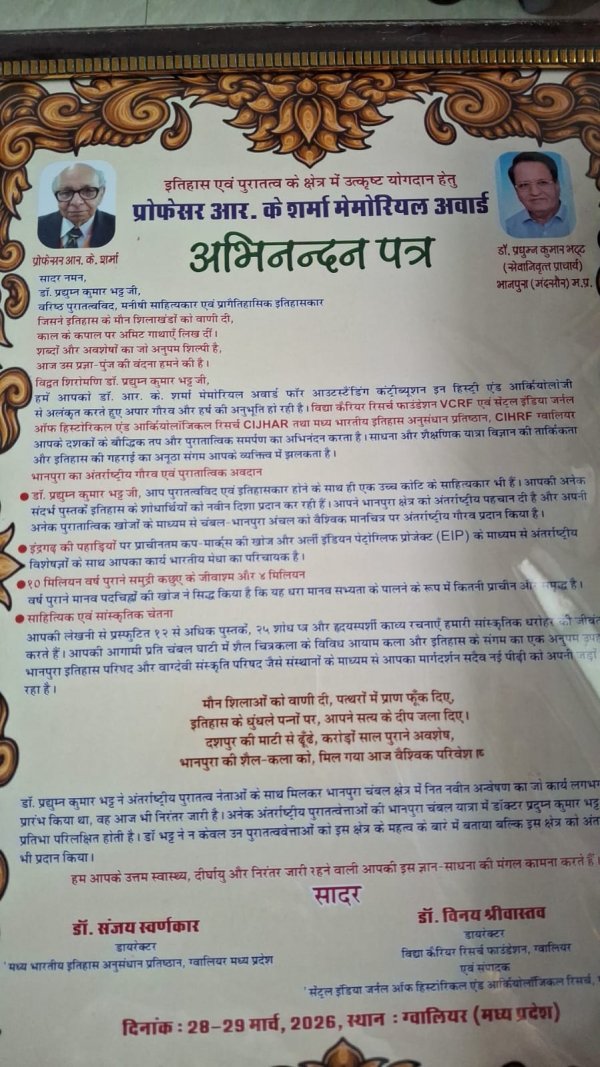 इतिहास एवं पुरातत्व के क्षेत्र में उत्कृष्ट योगदान हेतु
प्रोफेसर आर. के शर्मा मेमोरियल अवार्ड
अभिनन्दन पत्र
प्रोफेसर आर. के. शर्मा
डॉ. प्रधुम्न कुमार भट्ट
(सेवानिवृत्त प्राचार्य)
भानपुरा (मंदसौर) म.प्र.
सादर नमन,
डॉ. प्रद्युम्न कुमार भट्ट जी,
वरिष्ठ पुरातत्वविद, मनीषी साहित्यकार एवं प्रागैतिहासिक इतिहासकार
जिसने इतिहास के मौन शिलाखंडों को वाणी दी,
काल के कपाल पर अमिट गाथाएँ लिख दीं।
शब्दों और अवशेषों का जो अनुपम शिल्पी है,
आज उस प्रज्ञा-पुंज की वंदना हमने की है।
विद्वत शिरोमणि डॉ. प्रद्युम्न कुमार भट्ट जी,
हमें आपको डॉ. आर. के. शर्मा मेमोरियल अवार्ड फॉर आउटस्टैंडिंग कंट्रीब्यूशन इन हिस्ट्री एंड आर्कियोलॉजी
से अलंकृत करते हुए अपार गौरव और हर्ष की अनुभूति हो रही है। विद्या कैरियर रिसर्च फाउंडेशन VCRF एवं सेंट्रल इंडिया जर्नल
ऑफ हिस्टोरिकल एंड आर्कियोलॉजिकल रिसर्च CIJHAR तथा मध्य भारतीय इतिहास अनुसंधान प्रतिष्ठान, CIHRF ग्वालियर
आपके दशकों के बौद्धिक तप और पुरातात्विक समर्पण का अभिनंदन करता है। साधना और शैक्षणिक यात्रा विज्ञान की तार्किकता
और इतिहास की गहराई का अनूठा संगम आपके व्यक्तित्व में झलकता है।
भानपुरा का अंतर्राष्ट्रीय गौरव एवं पुरातात्विक अवदान
● डॉ. प्रद्युम्न कुमार भट्ट जी, आप पुरातत्वविद एवं इतिहासकार होने के साथ ही एक उच्च कोटि के साहित्यकार भी हैं। आपकी अनेक
संदर्भ पुस्तकें इतिहास के शोधार्थियों को नवीन दिशा प्रदान कर रही हैं। आपने भानपुरा क्षेत्र को अंतर्राष्ट्रीय पहचान दी है और अपनी
अनेक पुरातात्विक खोजों के माध्यम से चंबल-भानपुरा अंचल को वैश्विक मानचित्र पर अंतर्राष्ट्रीय गौरव प्रदान किया है।
● इंद्रगढ़ की पहाड़ियों पर प्राचीनतम कप-मार्क्स की खोज और अर्ली इंडियन पेट्रोग्लिफ प्रोजेक्ट (EIP) के माध्यम से अंतर्राष्ट्रीय
विशेषज्ञों के साथ आपका कार्य भारतीय मेधा का परिचायक है।
● १० मिलियन वर्ष पुराने समुद्री कछुए के जीवाश्म और ४ मिलियन
वर्ष पुराने मानव पदचिह्नों की खोज ने सिद्ध किया है कि यह धरा मानव सभ्यता के पालने के रूप में कितनी प्राचीन और समृद्ध है।
● साहित्यिक एवं सांस्कृतिक चेतना
आपकी लेखनी से प्रस्फुटित १२ से अधिक पुस्तकें, २५ शोध पत्र और हृदयस्पर्शी काव्य रचनाएँ हमारी सांस्कृतिक धरोहर को जीवंत
करते हैं। आपकी आगामी प्रति चंबल घाटी में शैल चित्रकला के विविध आयाम कला और इतिहास के संगम का एक अनुपम
भानपुरा इतिहास परिषद और वाग्देवी संस्कृति परिषद जैसे संस्थानों के माध्यम से आपका मार्गदर्शन सदैव नई पीढ़ी को अपनी जड़ों
रहा है।
मौन शिलाओं को वाणी दी, पत्थरों में प्राण फूँक दिए,
इतिहास के धुंधले पन्नों पर, आपने सत्य के दीप जला दिए।
दशपुर की माटी से ढूँढे, करोड़ों साल पुराने अवशेष,
भानपुरा की शैल-कला को, मिल गया आज वैश्विक परिवेश।
डॉ. प्रद्युम्न कुमार भट्ट ने अंतर्राष्ट्रीय पुरातत्व नेताओं के साथ मिलकर भानपुरा चंबल क्षेत्र में नित नवीन अन्वेषण का जो कार्य लगभग
प्रारंभ किया था, वह आज भी निरंतर जारी है। अनेक अंतर्राष्ट्रीय पुरातत्वेत्ताओं की भानपुरा चंबल यात्रा में डॉक्टर प्रदुम्न कुमार भट्ट
प्रतिभा परिलक्षित होती है। डॉ भट्ट ने न केवल उन पुरातत्ववेत्ताओं को इस क्षेत्र के महत्व के बारे में बताया बल्कि इस क्षेत्र को
भी प्रदान किया।
हम आपके उत्तम स्वास्थ्य, दीर्घायु और निरंतर जारी रहने वाली आपकी इस ज्ञान-साधना की मंगल कामना करते हैं।
सादर
डॉ. संजय स्वर्णकार
डायरेक्टर
'मध्य भारतीय इतिहास अनुसंधान प्रतिष्ठान, ग्वालियर मध्य प्रदेश
डॉ. विनय श्रीवास्तव
डायरेक्टर
विद्या कैरियर रिसर्च फाउंडेशन, ग्वालियर
एवं संपादक
'सेंट्रल इंडिया जर्नल ऑफ हिस्टोरिकल एंड आर्कियोलॉजिकल रिसर्च,
दिनांक : 28-29 मार्च, 2026, स्थान : ग्वालियर (मध्य प्रदेश)